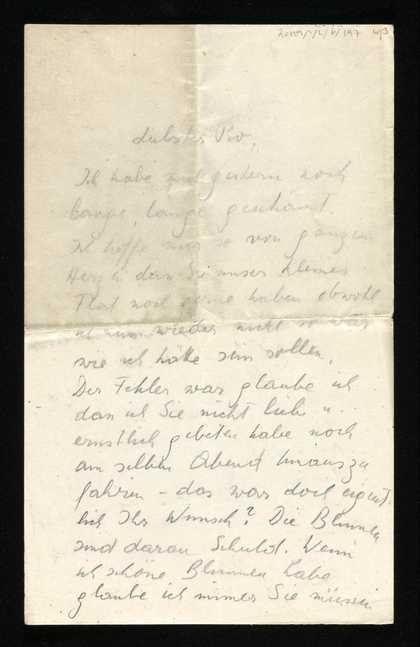 Liebster Pio,
Ich habe mich gestern noch
lange, lange geschämt.
Ich hoffe nur so von ganzem
Herzen dass Sie unser kleines
noch gerne haben obwohl
ich nun wieder nicht so war
wie ich hätte sein sollen.
Der Fehler war glaube ich
dass ich Sie nicht lieb u.
ernstlich gebeten habe noch
am selben Abend hinaus zu
fahren – das war doch eigent-
lich Ihr Wunsch? Die Blumen
sind daran Schuld. Wenn
ich schöne Blumen habe
glaube ich immer Sie müssen